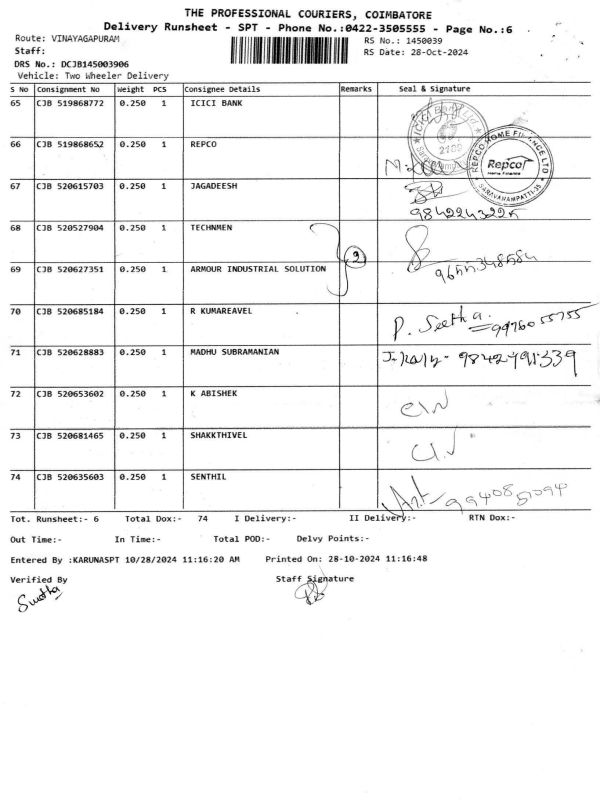 THE PROFESSIONAL COURIERS, COIMBATORE
Delivery Runsheet - SPT - Phone No.:0422-3505555 - Page No.:6
Route: VINAYAGAPURAM
RS No.: 1450039
Staff:
RS Date: 28-Oct-2024
DRS No.: DCJB145003906
Vehicle: Two Wheeler Delivery
S No Consignment No Weight PCS Consignee Details Remarks Seal & Signature
65 CJB 519868772 0.250 1 ICICI BANK
66 CJB 519868652 0.250 1 REPCO
REPCO HOME FINANCE LTD
Repco
Home Finance
SARAVANAMPATTI-35
67 CJB 520615703 0.250 1 JAGADEESH
9842243225
68 CJB 520527904 0.250 1 TECHNMEN
2
69 CJB 520627351 0.250 1 ARMOUR INDUSTRIAL SOLUTION
70 CJB 520685184 0.250 1 R KUMAREAVEL P. Seetha. =9976055755
71 CJB 520628883 0.250 1 MADHU SUBRAMANIAN 9842491339
72 CJB 520653602 0.250 1 K ABISHEK
73 CJB 520681465 0.250 1 SHAKKTHIVEL
74 CJB 520635603 0.250 1 SENTHIL
Tot. Runsheet:- 6 Total Dox:- 74 I Delivery:- II Delivery:- RTN Dox:-
Out Time:- In Time:- Total POD:- Delvy Points:-
Entered By :KARUNASPT 10/28/2024 11:16:20 AM Printed On: 28-10-2024 11:16:48
Verified By Staff Signature
Swetha